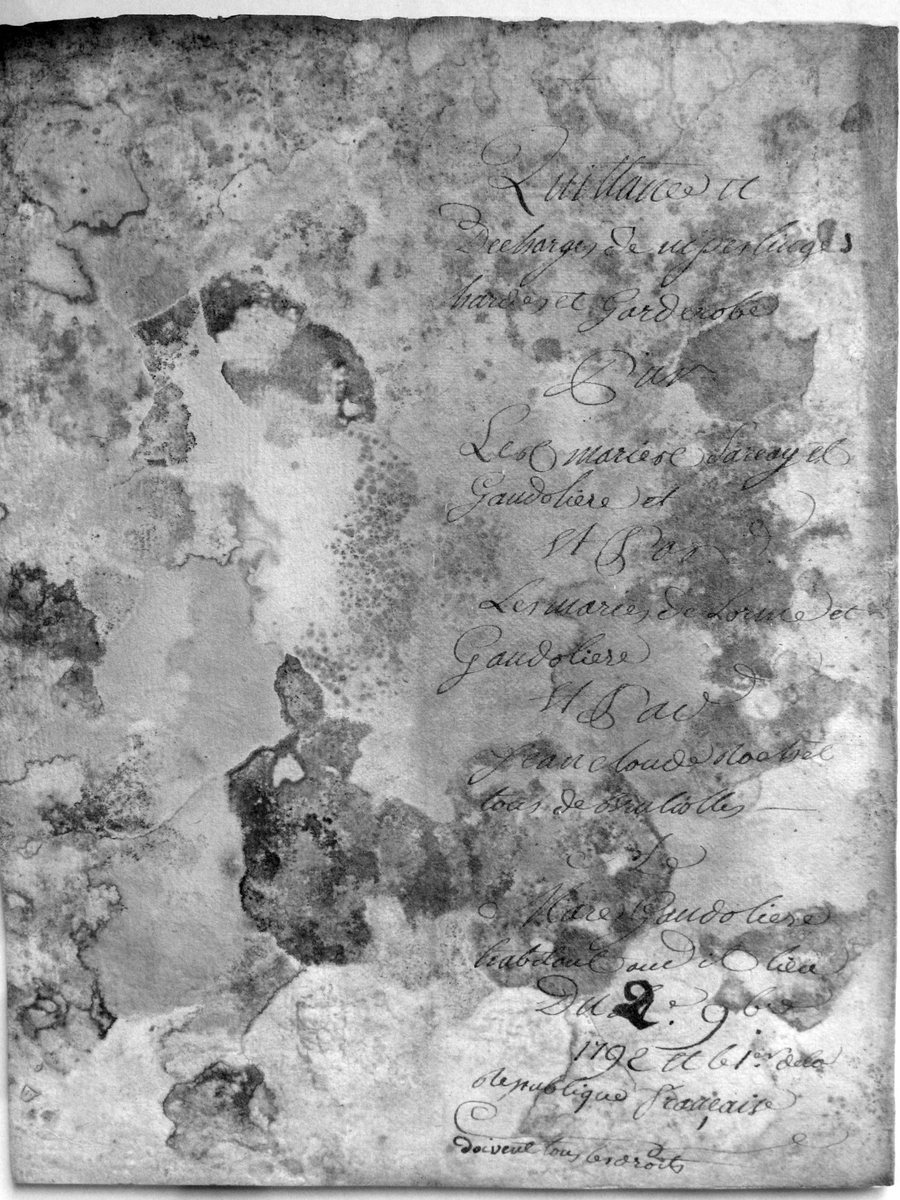 Quittance et
Decharges de linges
hardes et Garderobe
Par
Les mariés Sarcay et
Gaudoliere et
et Par
Les mariés de Lorme et
Gaudoliere
et Par
Jean Claude
tous de Brulliolles
à
Marc Gaudoliere
habitant audit lieu
Du 2e. 9bre
1792 et le 1er de la
Republique française
doivent tous les droits